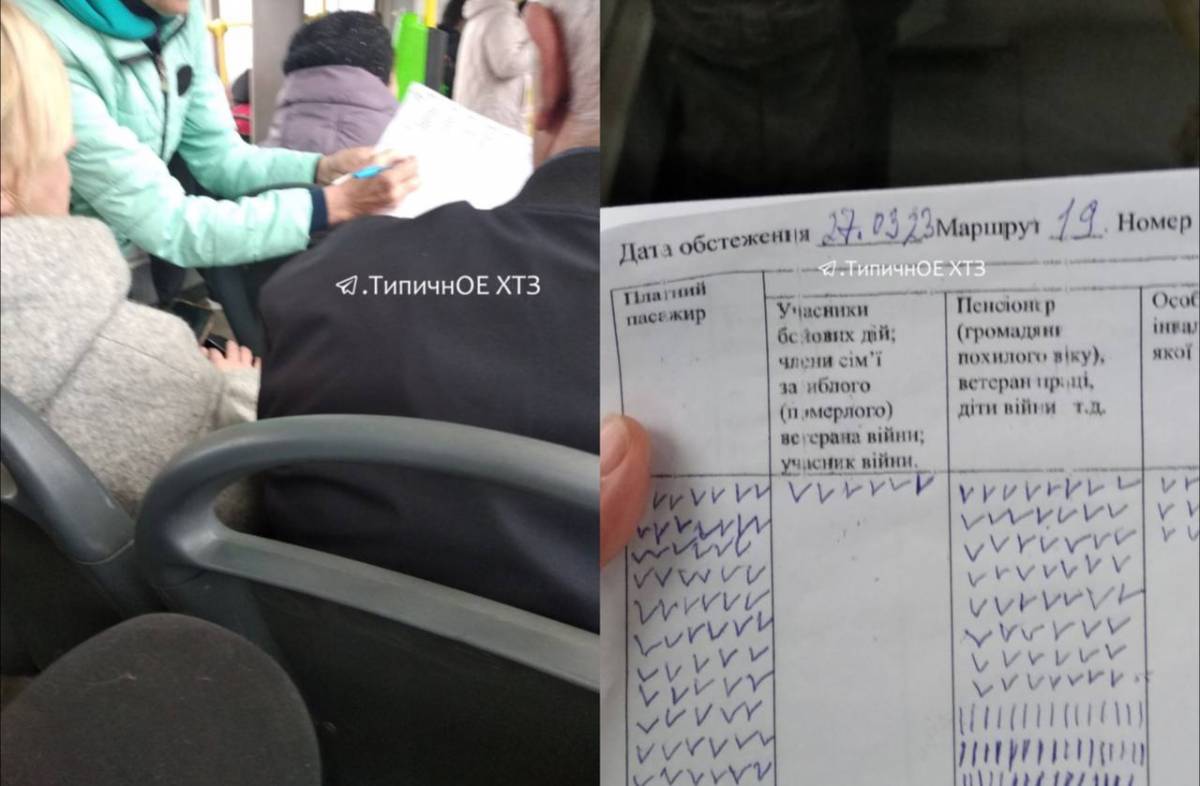 .ТипичнОЕ ХТЗ
Дата обстеження 27.03.23 Маршрут 19. Номер
.ТипичнОЕ ХТЗ
Платний
пасажир
Учасники
бойових дій;
члени сім'ї
загиблого
(померлого)
ветерана війни;
учасник війни.
Пенсіонер
(громадяни
похилого віку),
ветеран праці,
діти війни т.д.
Особ
інвал
якої